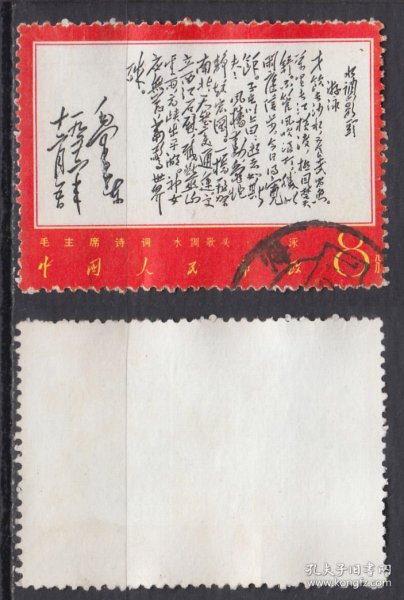 水调歌头
游泳
才饮长沙水又食武昌鱼
万里长江横渡极目楚天
舒不管风吹浪打胜似
闲庭信步今日得宽
馀子在川上曰逝者如斯
夫 风樯动龟蛇
静起宏图一桥飞架
南北天堑变通途更
立西江石壁截断巫山
云雨高峡出平湖神女
应无恙当惊世界
殊
毛泽东
一九五六年
十二月五日
毛主席诗词 水调歌头 泳
中国人民邮政 8分
孔夫子旧书网